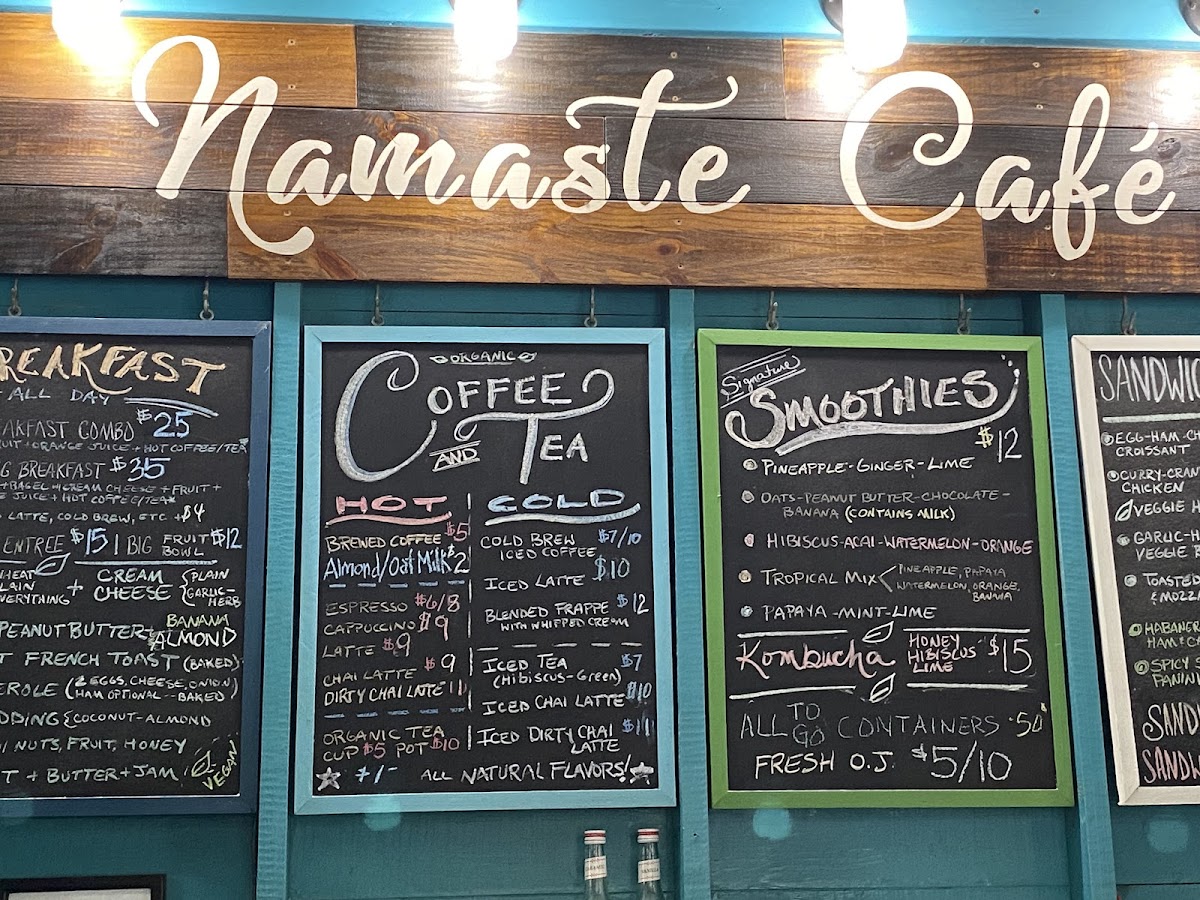 Namaste Café
BREAKFAST
ALL DAY
BREAKFAST COMBO $25
FRUIT + ORANGE JUICE + HOT COFFEE/TEA
BREAKFAST $35
+ BAGEL w CREAM CHEESE + FRUIT +
JUICE + HOT COFFEE/TEA
LATTE, COLD BREW, ETC. +$4
ENTREE $15 | BIG FRUIT BOWL $12
WHEAT
PLAIN
EVERYTHING
+ CREAM CHEESE { PLAIN
GARLIC-HERB
PEANUT BUTTER + BANANA
ALMOND
FRENCH TOAST (BAKED)
(2 EGGS, CHEESE, ONION)
HAM OPTIONAL -- BAKED)
{COCONUT-ALMOND
NUTS, FRUIT, HONEY
+ BUTTER + JAM
VEGAN
ORGANIC
COFFEE
AND TEA
HOT
BREWED COFFEE $5
Almond/Oat Milk $2
ESPRESSO $6/8
CAPPUCCINO $9
LATTE $9
CHAI LATTE $9
DIRTY CHAI LATTE 11
ORGANIC TEA
CUP $5 POT $10
COLD
COLD BREW $7/10
ICED COFFEE
ICED LATTE $10
BLENDED FRAPPE $12
WITH WHIPPED CREAM
ICED TEA $7
(HIBISCUS-GREEN)
ICED CHAI LATTE $10
ICED DIRTY CHAI $11
LATTE
+/- ALL NATURAL FLAVORS!
Signature
SMOOTHIES
$12
PINEAPPLE-GINGER-LIME
OATS-PEANUT BUTTER-CHOCOLATE-
BANANA (CONTAINS MILK)
HIBISCUS-ACAI-WATERMELON-ORANGE
TROPICAL MIX < PINEAPPLE, PAPAYA
WATERMELON, ORANGE,
BANANA
PAPAYA-MINT-LIME
Kombucha HONEY HIBISCUS LIME $15
ALL TO GO CONTAINERS .50
FRESH O.J. $5/10
EGG-HAM-
CROISSANT
CHICKEN
VEGGIE
VEGGIE
TOASTED
HAM
SPICY
PANINI